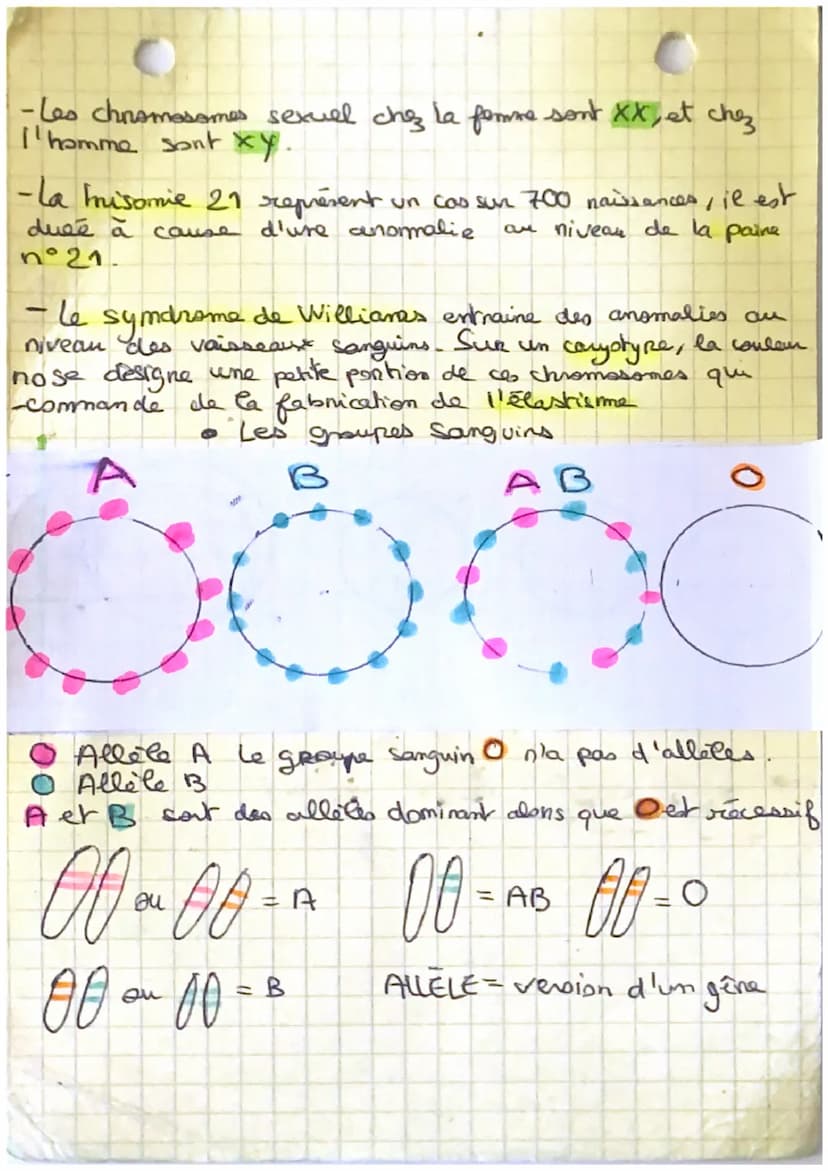 -Les chromosomes sexuel chez la femme sont XX, et chez
l'homme sont XY.
-La trisomie 21 représent un cas sur 700 naissances, il est
dueé à cause d'une anomalie au niveau de la paire
n°21.
- Le symdrome de Willianes entraine des anomalies au
niveau des vaisseaux sanguins. Sur un caryotype, la couleur
rose désigne une petite portion de ces chromosomes qui
-commande de la fabrication de l'élastisme
• Les groupes Sanguins
A B AB O
Allèle A Le groupe sanguin O n'a pas d'allèles.
Allèle B
A et B sont des allèles dominant alors que O est récessif
ou = A = AB = O
ou = B ALLÈLE = version d'un gêne